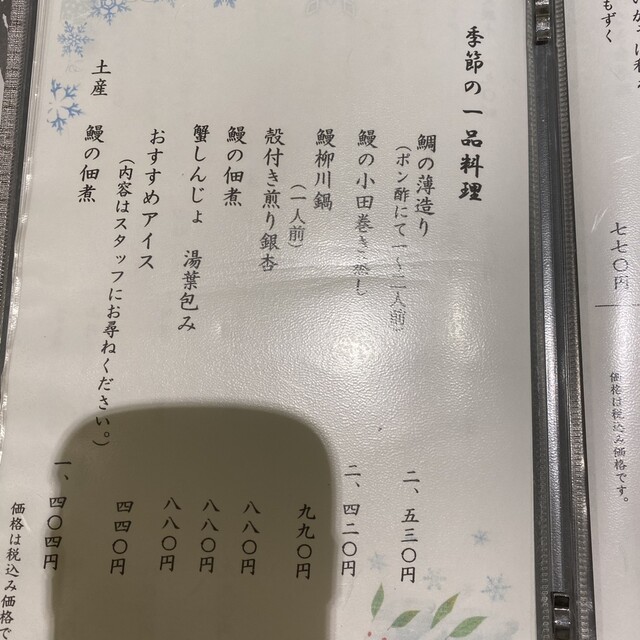 もずく
七七〇円
価格は税込み価格です。
季節の一品料理
鯛の薄造り 二、五三〇円
(ポン酢にて一〜二人前)
鰻の小田巻き蒸し 二、四二〇円
鰻柳川鍋 九九〇円
(一人前)
殻付き煎り銀杏 八八〇円
鰻の佃煮 八八〇円
蟹しんじょ 湯葉包み 八八〇円
おすすめアイス 四四〇円
(内容はスタッフにお尋ねください。)
土産
鰻の佃煮 一、四〇四円
価格は税込み価格で